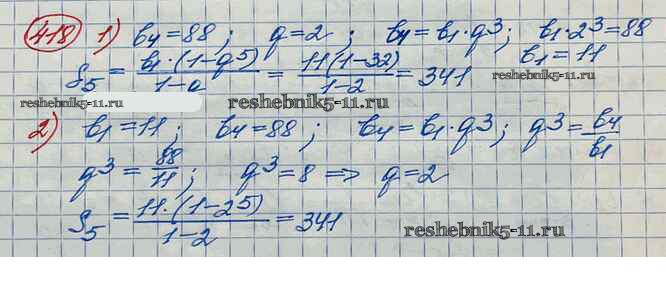 418 1) b₄ = 88 ; q = 2 ; b₄ = b₁ · q³ ; b₁ · 2³ = 88
S₅ = b₁ · (1 - q⁵) / 1 - q = 11 (1 - 32) / 1 - 2 = 341 b₁ = 11
reshebnik5-11.ru reshebnik5-11.ru
2) b₁ = 11 ; b₄ = 88 ; b₄ = b₁ · q³ ; q³ = b₄ / b₁
q³ = 88 / 11 ; q³ = 8 => q = 2
S₅ = 11 · (1 - 2⁵) / 1 - 2 = 341
reshebnik5-11.ru